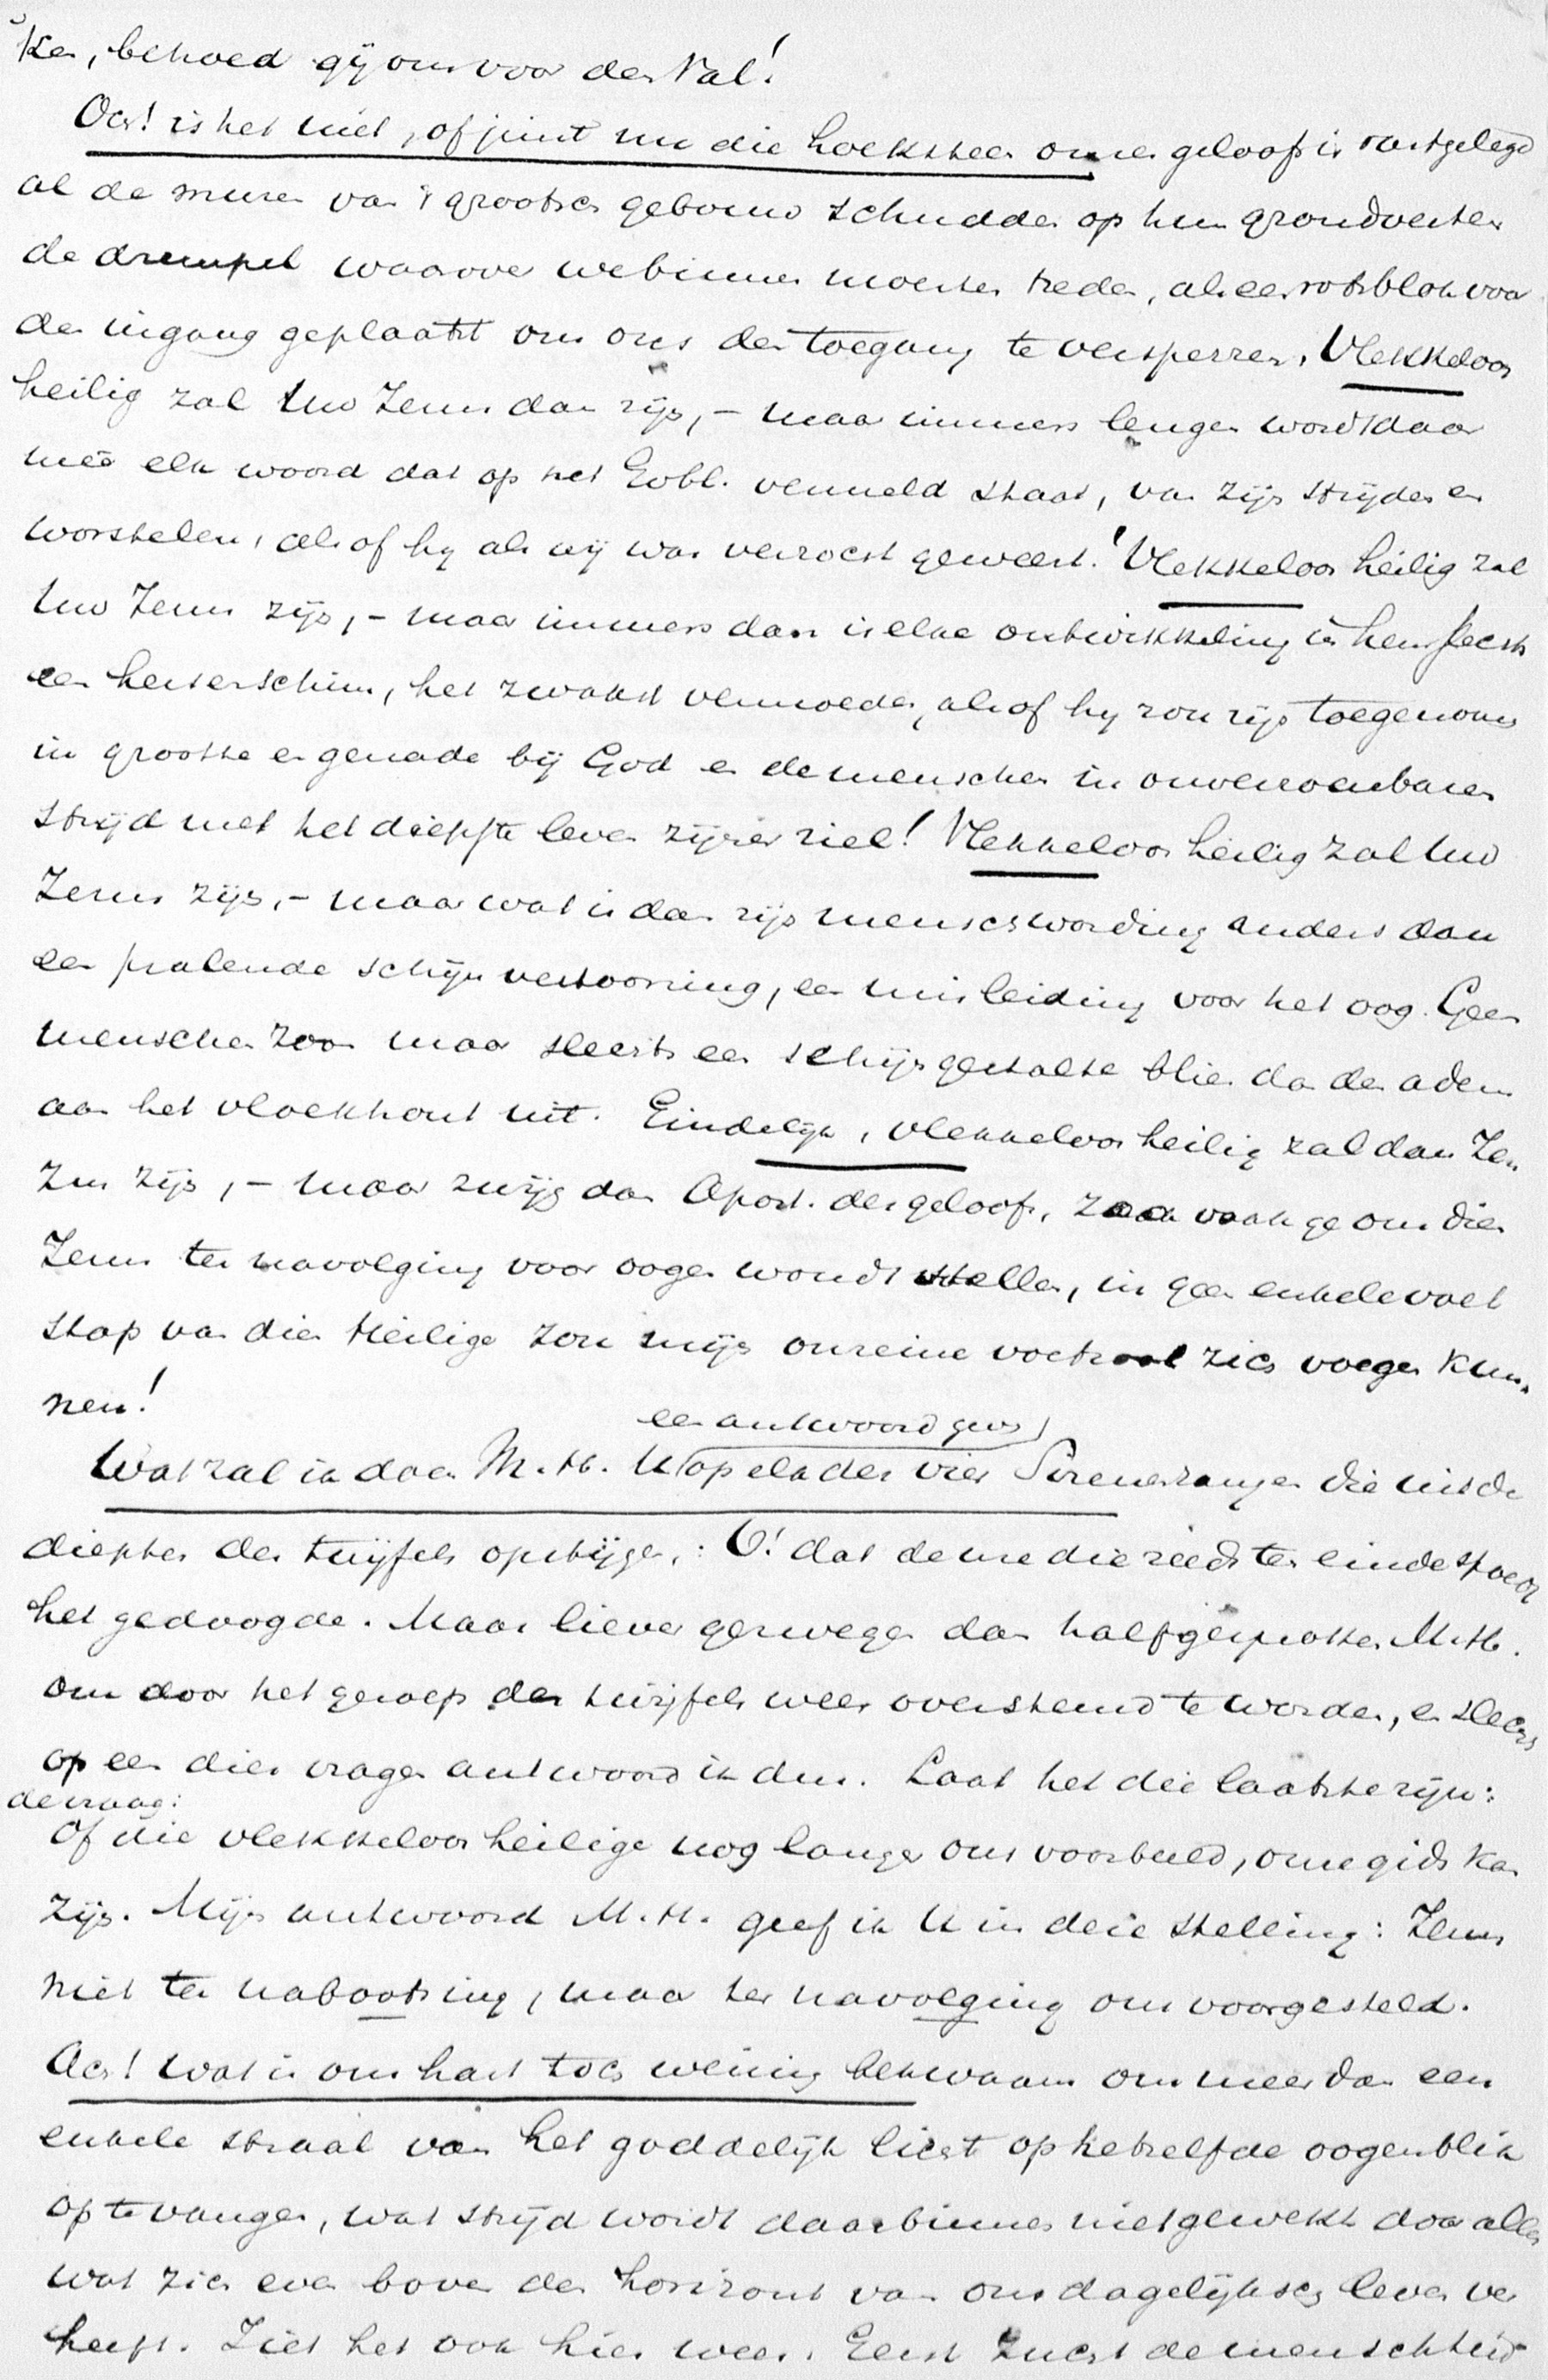 ken, behoed gij ons voor den val!
Och! is het niet, of juist nu die hoeksteen onzes geloofs is vastgelegd
al de muren van 't grootsch gebouw schudden op hun grondvesten
de drempel waarover we binnen moesten treden, als een rotsblok voor
den ingang geplaatst om ons den toegang te versperren. Vlekkeloos
heilig zal Uw Jezus dan zijn, – maar immers leugen wordt daar
meê elk woord dat op het Evbl. vermeld staat, van zijn strijden en
worstelen, als of hij als wij was verzocht geweest. Vlekkeloos heilig zal
Uw Jezus zijn, – maar immers dan is elke ontwikkeling in hem slechts
een hersenschim, het zwakst vermoeden, alsof hij zou zijn toegenomen
in grootte en genade bij God en de menschen in onverzoenbaren
strijd met het diepste leven zijner ziel! Vlekkeloos heilig zal Uw
Jezus zijn, – maar wat is dan zijn menschwording anders dan
een pralende schijnvertooning, een misleiding voor het oog. Geen
menschenzoon maar slechts een schijngestalte blies dan den adem
aan het vloekhout uit. Eindelijk, vlekkeloos heilig zal dan Je
zus zijn, – maar zwijg dan Apost. des geloofs, zoo vaak ge ons dien
Jezus ter navolging voor oogen woudt stellen, in geen enkele voet
stap van dien Heilige zou mijn onreine voetzool zich voegen kun
nen!
een antwoord geven
Wat zal ik dan M. H. U op elk dezer vier Sirenenzangen die uit de
diepten des twijfels opstijgen,: O! dat de ure die reeds ten einde spoedt
het gedoogde. Maar liever gezwegen dan half gesproken M. H.
om door het geroep des twijfels weer overstemd te worden, en slechts
op een dier vragen antwoord ik dus. Laat het die laatste zijn:
de vraag:
Of die vlekkeloos heilige nog langer ons voorbeeld, onze gids kan
zijn. Mijn antwoord M. H. geef ik U in deze stelling: Jezus
niet ter nabootsing, maar ter navolging ons voorgesteld.
Ach! wat is ons hart toch weinig bekwaam om meer dan een
enkele straal van het goddelijk licht op hetzelfde oogenblik
op te vangen, wat strijd wordt daarbinnen niet gewekt door alles
wat zich even boven den horizont van ons dagelijksch leven ver
heft. Ziet het ook hier weer. Eerst zucht de menschheid